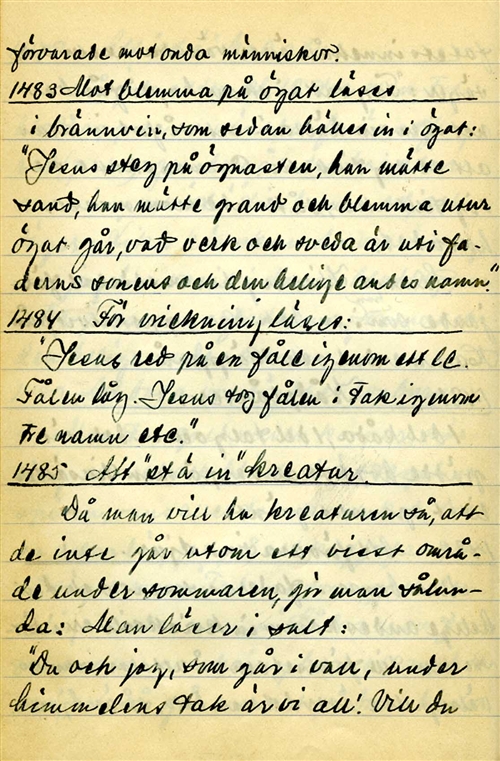 förvarade mot onda människor.
1483 Mot blemma på ögat läses
i brännvin, som sedan hälles in i ögat:
"Jesus steg på örnasten, han mätte
sand, han mätte grand och blemma utur
ögat går, vad verk och sveda är uti fa-
derns sonens och den helige andes namn."
1484 För vrickning läses:
"Jesus red på en fåle igenom ett le.
Fålen låg. Jesus tog fålen i Tak igenom
tre namn etc."
1485 Att "stä in" kreatur.
Då man vill ha kreaturen så, att
de inte går utom ett visst områ-
de under sommaren, gör man sålun-
da: Man läser i salt:
"Du och jag, som går i vall, under
himmelens tak är vi all! Vill du